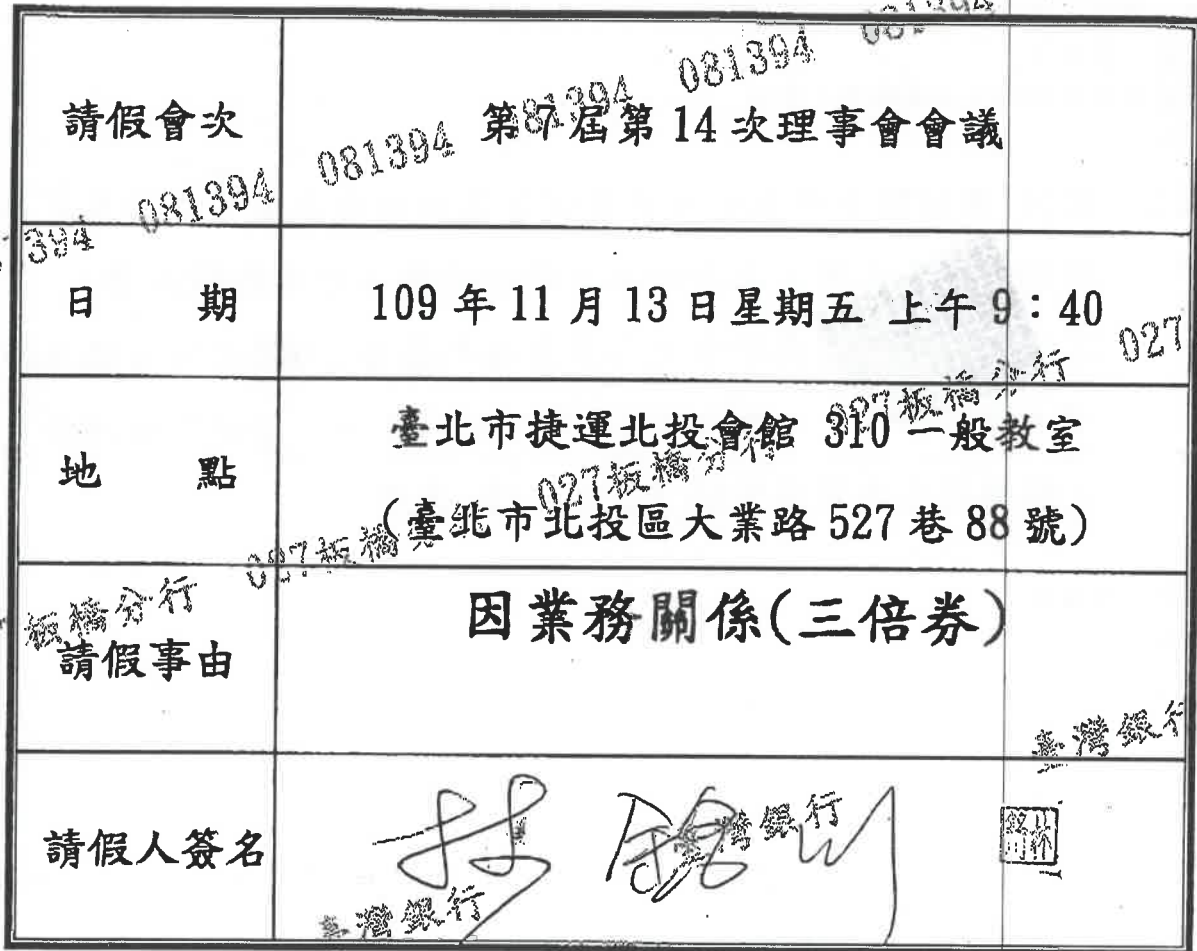 請假會次 第7屆第 14 次理事會會議
日 期 109 年 11 月 13 日星期五 上午 9：40
地 點 臺北市捷運北投會館 310 一般教室
(臺北市北投區大業路 527 巷 88 號)
請假事由 因業務關係(三倍券)
請假人簽名 林銘川
081394 081394 081394 081394
394
027板橋分行 027板橋分行 027板橋分行 027
板橋分行
臺灣銀行
臺灣銀行
臺灣銀行